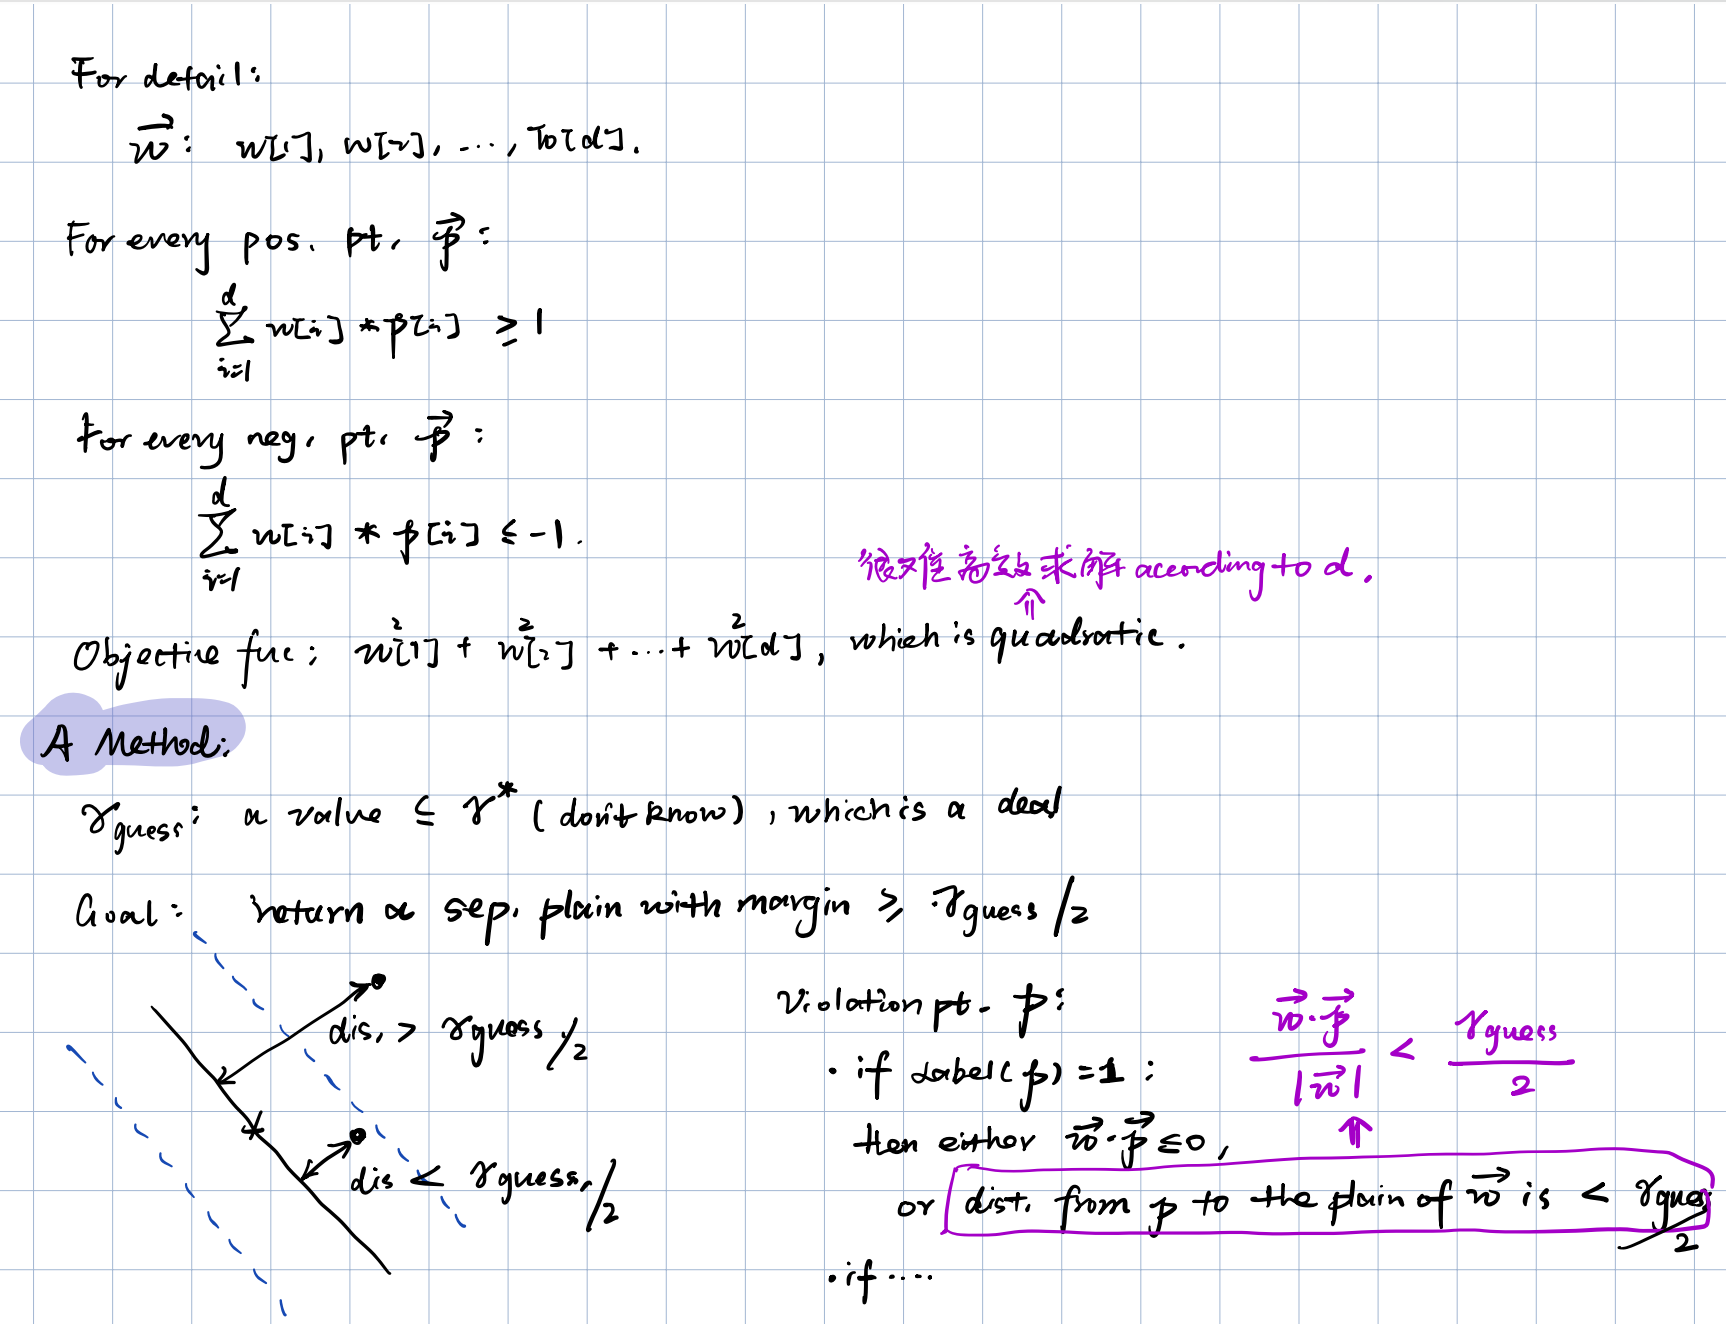 For detail:
w⃗: w[1], w[2], ..., w[d].
For every pos. pt. p⃗:
d
∑ w[i] * p[i] ≥ 1
i=1
For every neg. pt. p⃗:
d
∑ w[i] * p[i] ≤ -1.
i=1
很难高效求解 according to d.
⇑
Objective func: w²[1] + w²[2] + ... + w²[d], which is quadratic.
A Method:
γguess: a value ≤ γ* (don't know), which is a
Goal: return a sep. plain with margin ≥ γguess/2
dis. > γguess/2
dis < γguess/2
Violation pt. p:
• if Label(p) = 1:
then either w⃗·p⃗ ≤ 0,
w⃗·p⃗ / |w⃗| < γguess / 2
⇑
or dist. from p to the plain of w⃗ is < γguess/2
• if ....